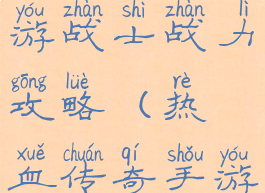 yóu zhàn shì zhàn lì
游战士战力
gōng lüè rè
攻略（热
xuě chuán qí shǒu yóu
血传奇手游